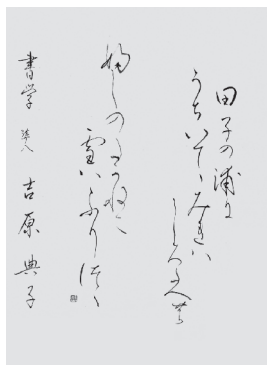 田子の浦に
うちいてゝみれハ
しろたへ
婦しのたかねに
雪ハふり津ゝ
書学 吉原典子